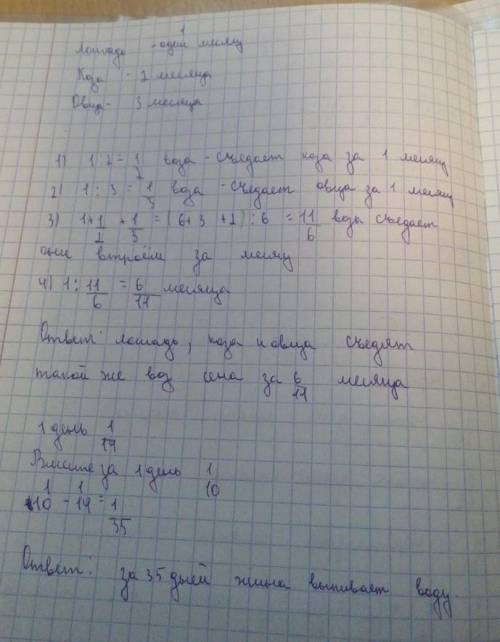 лошадь - один месяц
Коза - 2 месяца
Овца - 3 месяца
1) 1:2=1/2 воза - съедает коза за 1 месяц
2) 1:3=1/3 воза - съедает овца за 1 месяц
3) 1+1/2+1/3=(6+3+2):6=11/6 воза съедает
они втроём за месяц
4) 1:11/6=6/11 месяца
Ответ: лошадь, коза и овца съедят
такой же воз сена за 6/11 месяца
1 день 1/14
Вместе за 1 день 1/10
1/10-1/14=1/35
Ответ: за 35 дней жина выпивает воду.